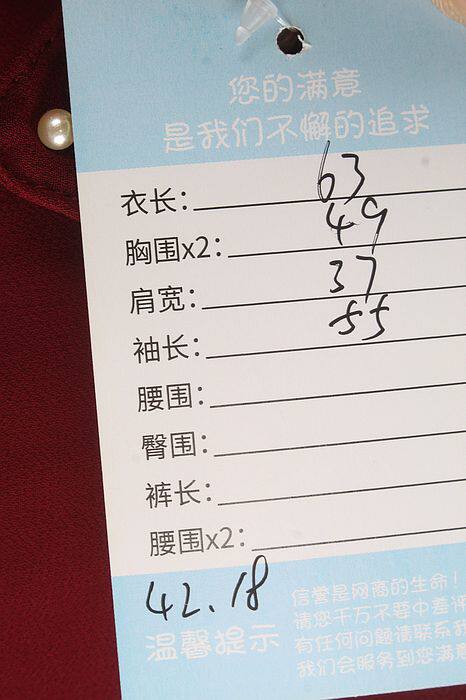 您的满意
是我们不懈的追求
衣长: 63
胸围x2: 49
肩宽: 37
袖长: 55
腰围:
臀围:
裤长:
腰围x2:
42.18
温馨提示
信誉是网商的生命!
请您千万不要中差评
有任何问题请联系我
我们会服务到您满意